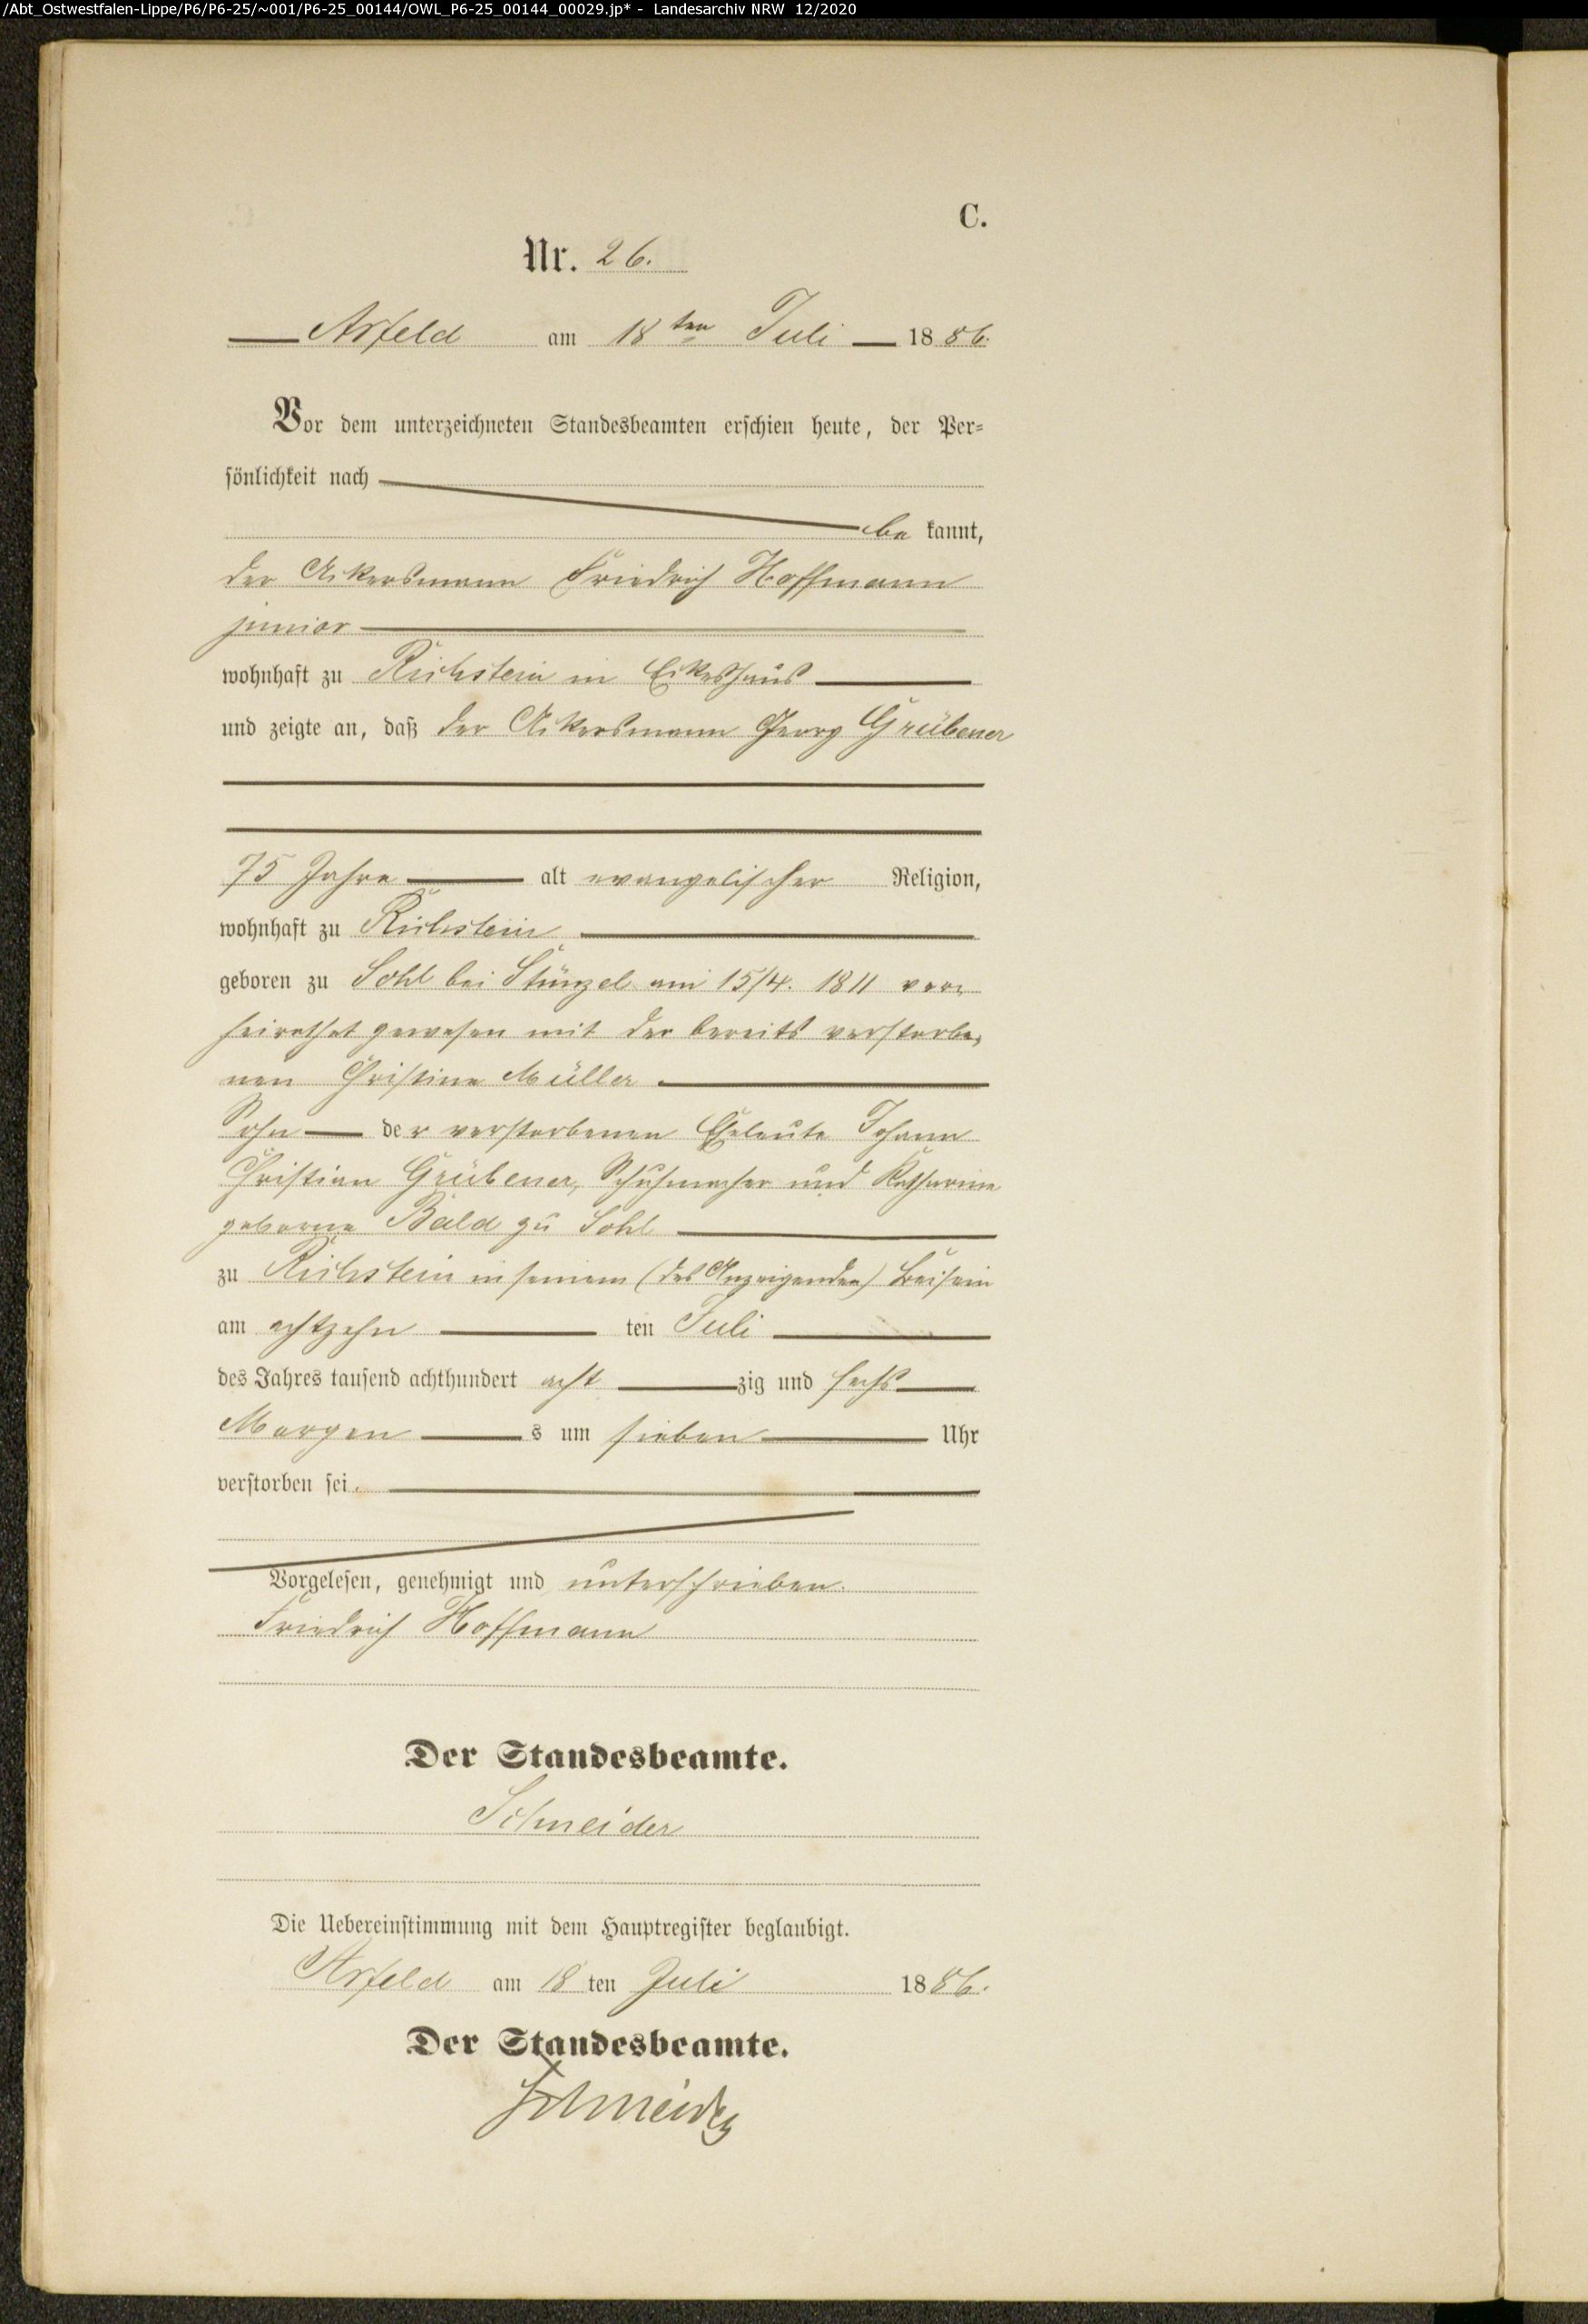 /Abt_Ostwestfalen-Lippe/P6/P6-25/~001/P6-25_00144/OWL_P6-25_00144_00029.jp* - Landesarchiv NRW 12/2020
C.
Nr. 26.
Arfeld am 18ten Juli 1886.
Vor dem unterzeichneten Standesbeamten erschien heute, der Per=
sönlichkeit nach
be kannt,
der Ackersmann Friedrich Hoffmann
junior
wohnhaft zu Richstein in Eikeshaus
und zeigte an, daß der Ackersmann Georg Grübener
75 Jahre alt evangelischer Religion,
wohnhaft zu Richstein
geboren zu Sohl bei Stünzel am 15/4. 1811 ver=
heirathet gewesen mit der bereits verstorbe,
nen Christine Müller
Sohn der verstorbenen Eheleute Johann
Christian Grübener, Schuhmacher und Katharine
geborne Bald zu Sohl
zu Richstein in seinem (des Anzeigenden) Beisein
am achtzehn ten Juli
des Jahres tausend achthundert acht zig und sechs
Morgen s um sieben Uhr
verstorben sei.
Vorgelesen, genehmigt und unterschrieben.
Friedrich Hoffmann
Der Standesbeamte.
Schneider
Die Uebereinstimmung mit dem Hauptregister beglaubigt.
Arfeld am 18 ten Juli 1886.
Der Standesbeamte.
Schneider